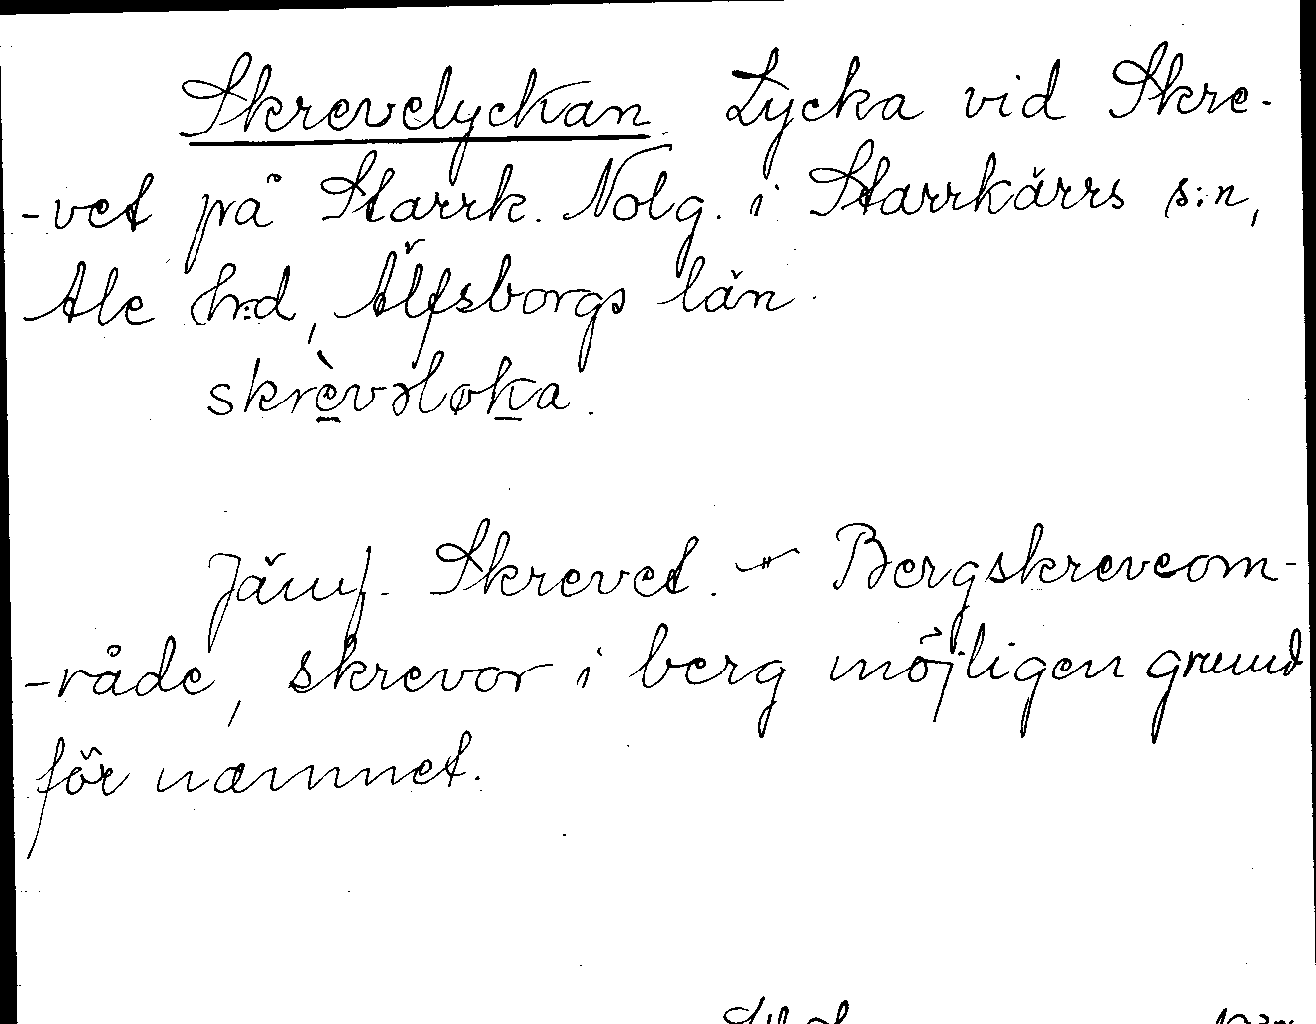 Skrevelyckan. Lycka vid Skre-
-vet på Starrk. Nolg. i Starrkärrs s:n,
Ale h:d, Älfsborgs län.
skrèvəløka.
Jämf. Skrevet. — Bergskreveom-
-råde, skrevor i berg möjligen grund
för namnet.